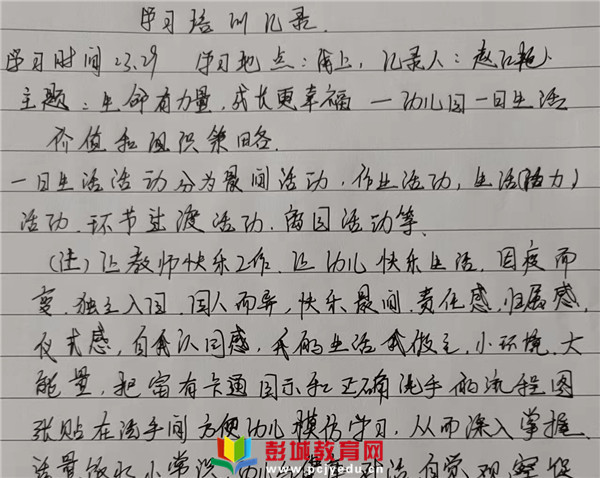 学习培训记录.
学习时间 23.29 学习地点：网上, 记录人：赵红艳
主题：生命有力量,成长更幸福 一 幼儿园一日生活
价值和组织策略.
一日生活活动分为晨间活动,作业活动,生活(活力)
活动.环节过渡活动.离园活动等.
(注)让教师快乐工作.让幼儿快乐生活.因疫而
变.独立入园.因人而异,快乐晨间.责任感,归属感,
仪式感,自我认同感,我的生活我做主,小环境.大
能量,把富有卡通图示和正确洗手的流程图
张贴在洗手间方便幼儿模仿学习,从而深入掌握
适量饮水小常识,幼儿 自觉观察
彭城教育网
www.pcjyedu.cn